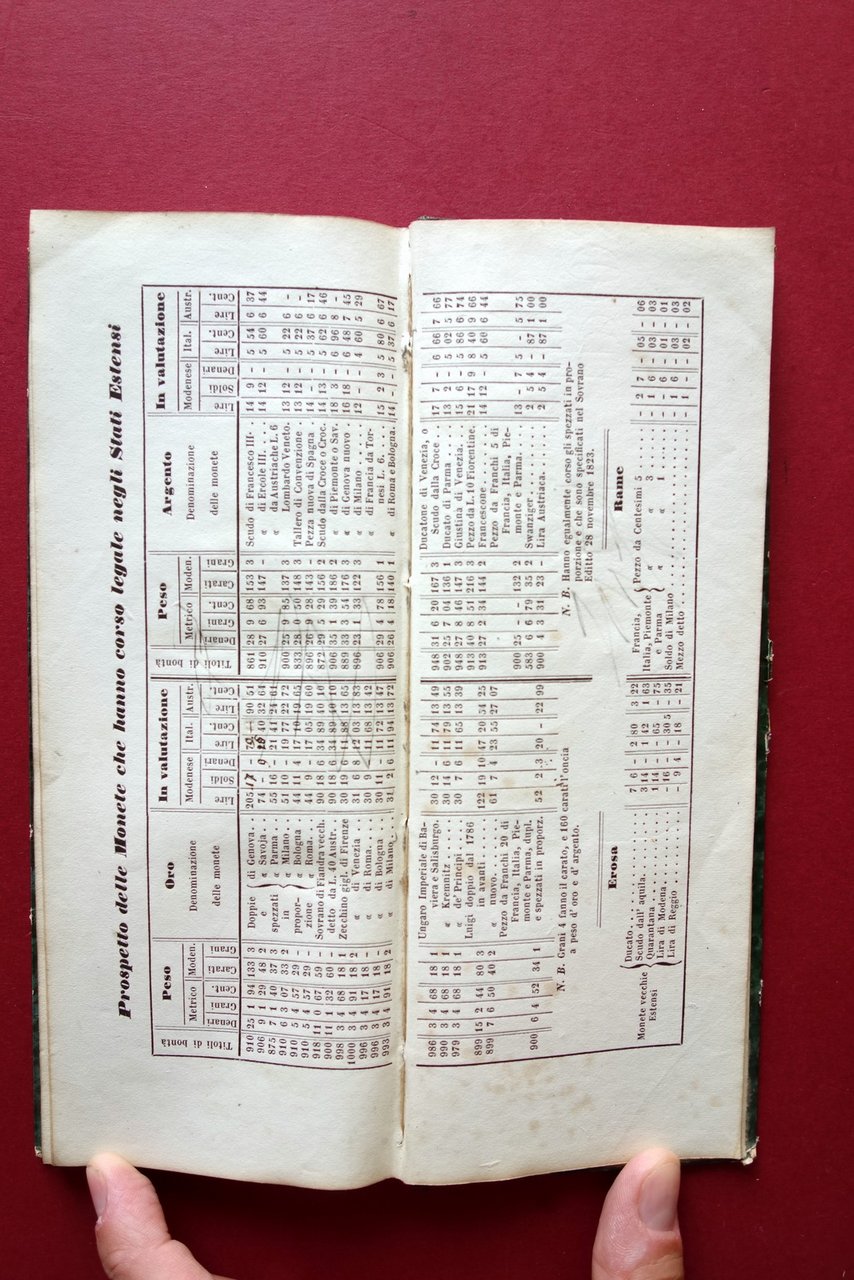 Prospetto delle Monete che hanno corso legale negli Stati Estensi
Oro
Titoli di bontà | Peso | Denominazione delle monete | In valutazione
Metrico | Moden. | Modenese | Ital. | Austr.
Denari | Grani | Cent. | Carati | Grani | Lire | Soldi | Denari | Lire | Cent. | Lire | Cent.
910 25 1 94 133 3 Doppie di Genova
906 9 1 29 48 2 e « Savoja 74
875 7 1 40 37 3 spezzati « Parma 55 16 - 21 41 24 61
910 6 3 07 33 2 in « Milano 51 10 - 19 77 22 72
910 5 4 57 29 - propor- « Bologna 44 11
910 5 4 57 29 - zione « Roma 44 9 - 17 05 19 60
918 11 0 67 59 - Sovrano di Fiandra vecch. 90 18 6 34 89 40 10
900 11 1 32 60 - detto da L. 40 Austr. 90 18 6 34 89 40 10
998 3 4 68 18 1 Zecchino gigl. di Firenze 30 19 6 11 88 13 65
1000 3 4 91 18 2 « di Venezia 31 6 8 12 03 13 83
996 3 4 17 18 1 « di Roma 30 9 - 11 68 13 42
996 3 4 17 18 1 « di Bologna 30 11 - 11 72 13 47
993 3 4 91 18 2 « di Milano 31 2 6 11 94 13 72
986 3 4 68 18 1 Ungaro Imperiale di Ba-
viera e Salisburgo. 30 12 - 11 74 13 49
990 3 4 68 18 1 « Kremnitz 30 14 6 11 79 13 55
979 3 4 68 18 1 « de' Principi 30 7 6 11 65 13 39
899 15 2 44 80 3 Luigi doppio dal 1786
in avanti 122 19 10 47 20 54 25
899 7 6 50 40 2 « nuovo 61 7 4 23 55 27 07
Pezzo da Franchi 20 di
Francia, Italia, Pie-
monte e Parma, dupl.
900 6 4 52 34 1 e spezzati in proporz. 52 2 3 20 - 22 99
N. B. Grani 4 fanno il carato, e 160 carati l'oncia
a peso d' oro e d' argento.
Erosa
Monete vecchie Estensi
Ducato 7 6 - 2 80 3 22
Scudo dall' aquila 3 14 - 1 42 1 63
Quarantana 1 14 - - 65 - 75
Lira di Modena - 16 - - 30 5 - 35
Lira di Reggio - 9 4 - 18 - 21
Argento
Titoli di bontà | Peso | Denominazione delle monete | In valutazione
Metrico | Moden. | Modenese | Ital. | Austr.
Denari | Grani | Cent. | Carati | Grani | Lire | Soldi | Denari | Lire | Cent. | Lire | Cent.
861 28 9 68 153 3 Scudo di Francesco III. 14 9 - 5 54 6 37
910 27 6 93 147 - « di Ercole III. 14 12 - 5 60 6 44
« da Austriache L. 6
900 25 9 85 137 3 Lombardo Veneto. 13 12 - 5 22 6 -
833 28 0 50 148 3 Tallero di Convenzione 13 12 - 5 22 6 -
896 26 9 28 143 - Pezza nuova di Spagna 14 - - 5 37 6 17
872 29 5 29 156 2 Scudo dalla Croce o Croc. 14 13 - 5 62 6 46
906 35 1 39 186 2 « di Piemonte o Sav. 18 3 - 6 96 8 -
889 33 3 54 176 3 « di Genova nuovo 16 18 - 6 48 7 45
896 23 1 33 122 3 « di Milano 12 - - 4 60 5 29
« di Francia da Tor-
906 29 4 78 156 1 nesi L. 6. 15 2 3 5 80 6 67
906 26 4 18 140 1 « di Roma e Bologna. 14 - - 5 37 6 17
Ducatone di Venezia, o
948 31 6 20 167 3 Scudo dalla Croce 17 7 - 6 66 7 66
902 25 7 04 136 1 Ducato di Parma 13 2 - 5 02 5 77
948 27 8 46 147 3 Giustina di Venezia. 15 6 - 5 86 6 74
913 40 8 51 216 3 Pezzo da L. 10 Fiorentine. 21 17 9 8 40 9 66
913 27 2 34 144 2 Francescone 14 12 - 5 60 6 44
Pezzo da Franchi 5 di
Francia, Italia, Pie-
900 25 - - 132 2 monte e Parma. 13 - 7 5 - 5 75
583 6 6 79 35 2 Swanziger 2 5 4 - 87 1 00
900 4 3 31 23 - Lira Austriaca 2 5 4 - 87 1 00
N. B. Hanno egualmente corso gli spezzati in pro-
porzione e che sono specificati nel Sovrano
Editto 28 novembre 1823.
Rame
Francia, Italia, Piemonte e Parma
Pezzo da Centesimi 5 - 2 7 - 05 - 06
« « 3 - 1 6 - 03 - 03
« « 1 - - 6 - 01 - 01
Soldo di Milano - 1 6 - 03 - 03
Mezzo detto - - - 02 - 02